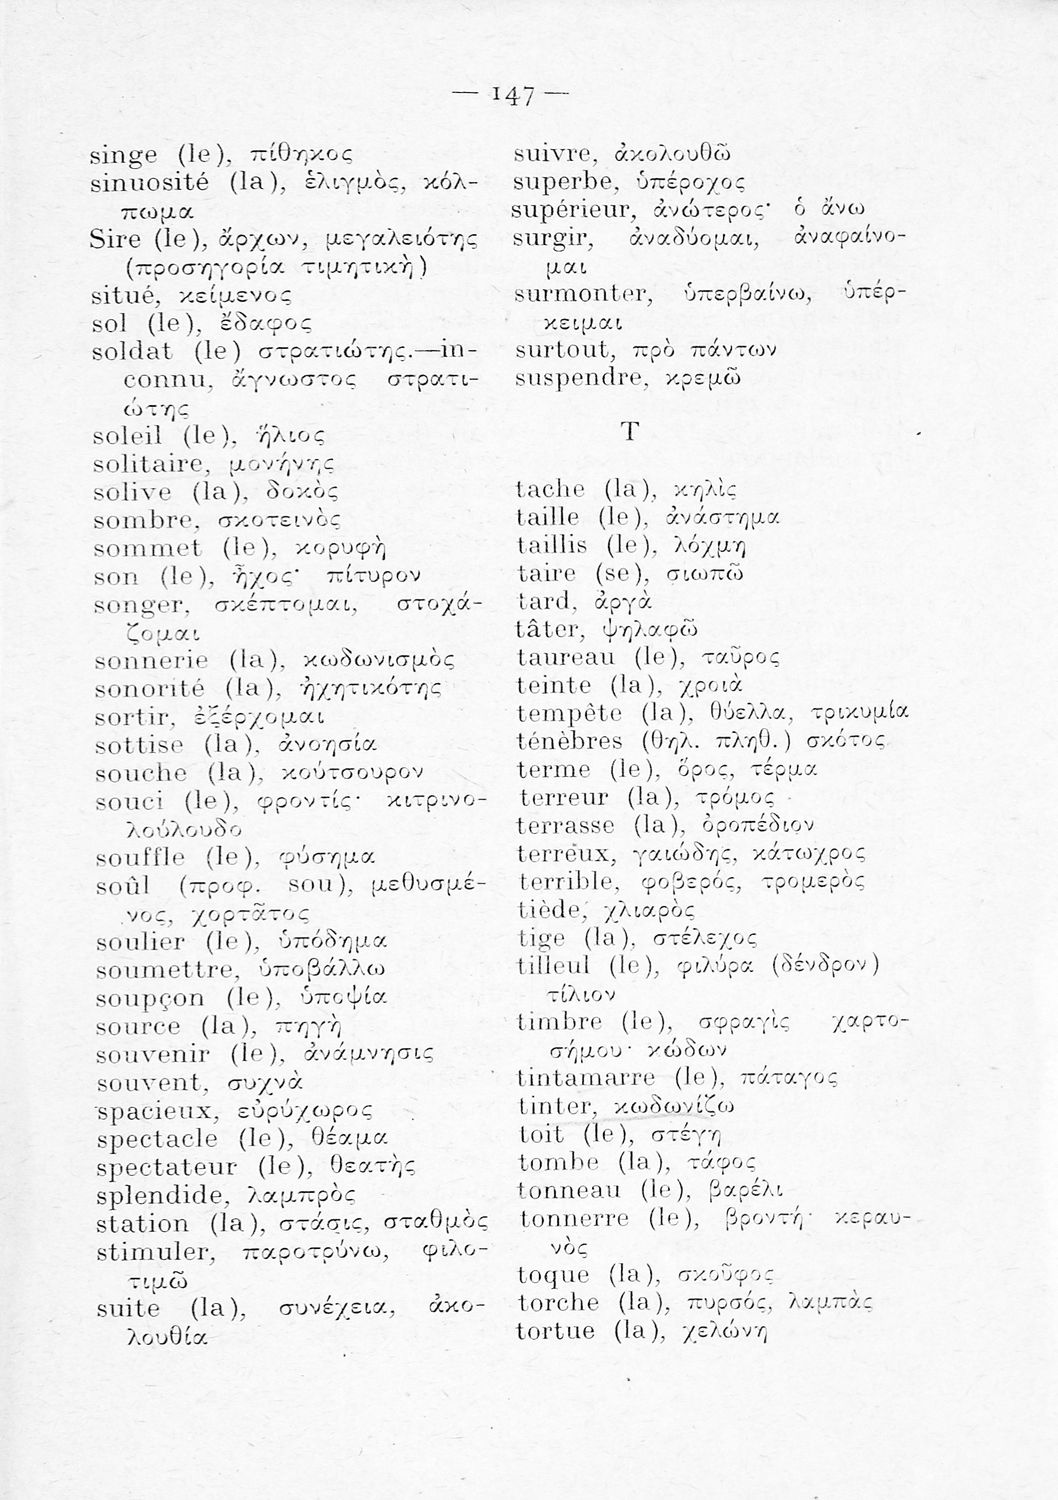 — 147 —
singe (le), πίθηκος
sinuosité (la), ἑλιγμὸς, κόλ-
πωμα
Sire (le), ἄρχων, μεγαλειότης
(προσηγορία τιμητικὴ)
situé, κείμενος
sol (le), ἔδαφος
soldat (le) στρατιώτης.—in-
connu, ἄγνωστος στρατι-
ώτης
soleil (le), ἥλιος
solitaire, μονήνης
solive (la), δοκὸς
sombre, σκοτεινὸς
sommet (le), κορυφὴ
son (le), ἦχος· πίτυρον
songer, σκέπτομαι, στοχά-
ζομαι
sonnerie (la), κωδωνισμὸς
sonorité (la), ἠχητικότης
sortir, ἐξέρχομαι
sottise (la), ἀνοησία
souche (la), κούτσουρον
souci (le), φροντίς· κιτρινο-
λούλουδο
souffle (le), φύσημα
soûl (προφ. sou), μεθυσμέ-
νος, χορτᾶτος
soulier (le), ὑπόδημα
soumettre, ὑποβάλλω
soupçon (le), ὑποψία
source (la), πηγὴ
souvenir (le), ἀνάμνησις
souvent, συχνὰ
spacieux, εὐρύχωρος
spectacle (le), θέαμα
spectateur (le), θεατὴς
splendide, λαμπρὸς
station (la), στάσις, σταθμὸς
stimuler, παροτρύνω, φιλο-
τιμῶ
suite (la), συνέχεια, ἀκο-
λουθία
suivre, ἀκολουθῶ
superbe, ὑπέροχος
supérieur, ἀνώτερος· ὁ ἄνω
surgir, ἀναδύομαι, ἀναφαίνο-
μαι
surmonter, ὑπερβαίνω, ὑπέρ-
κειμαι
surtout, πρὸ πάντων
suspendre, κρεμῶ
T
tache (la), κηλὶς
taille (le), ἀνάστημα
taillis (le), λόχμη
taire (se), σιωπῶ
tard, ἀργὰ
tâter, ψηλαφῶ
taureau (le), ταῦρος
teinte (la), χροιὰ
tempête (la), θύελλα, τρικυμία
ténèbres (θηλ. πληθ.) σκότος
terme (le), ὅρος, τέρμα
terreur (la), τρόμος
terrasse (la), ὀροπέδιον
terreux, γαιώδης, κάτωχρος
terrible, φοβερός, τρομερὸς
tiède, χλιαρὸς
tige (la), στέλεχος
tilleul (le), φιλύρα (δένδρον)
τίλιον
timbre (le), σφραγὶς χαρτο-
σήμου· κώδων
tintamarre (le), πάταγος
tinter, κωδωνίζω
toit (le), στέγη
tombe (la), τάφος
tonneau (le), βαρέλι
tonnerre (le), βροντή· κεραυ-
νὸς
toque (la), σκοῦφος
torche (la), πυρσός, λαμπὰς
tortue (la), χελώνη